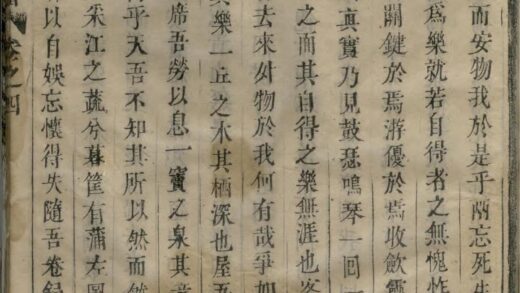 而安物我於是乎兩忘死生
爲樂就若自得者之無愧怍
關鍵於焉游優於焉收歛
真實乃見鼓瑟鳴琴一回
之面其自得之樂無涯也客
去來外物於我何有哉爭如
其樂一丘之木其栖深也屋吾
席吾勞以息一竇之泉其音
乎天吾不知其所以然而然
采江之蔬兮暮筐有蒲左圖
以自娛忘懷得失隨吾卷
卷之四